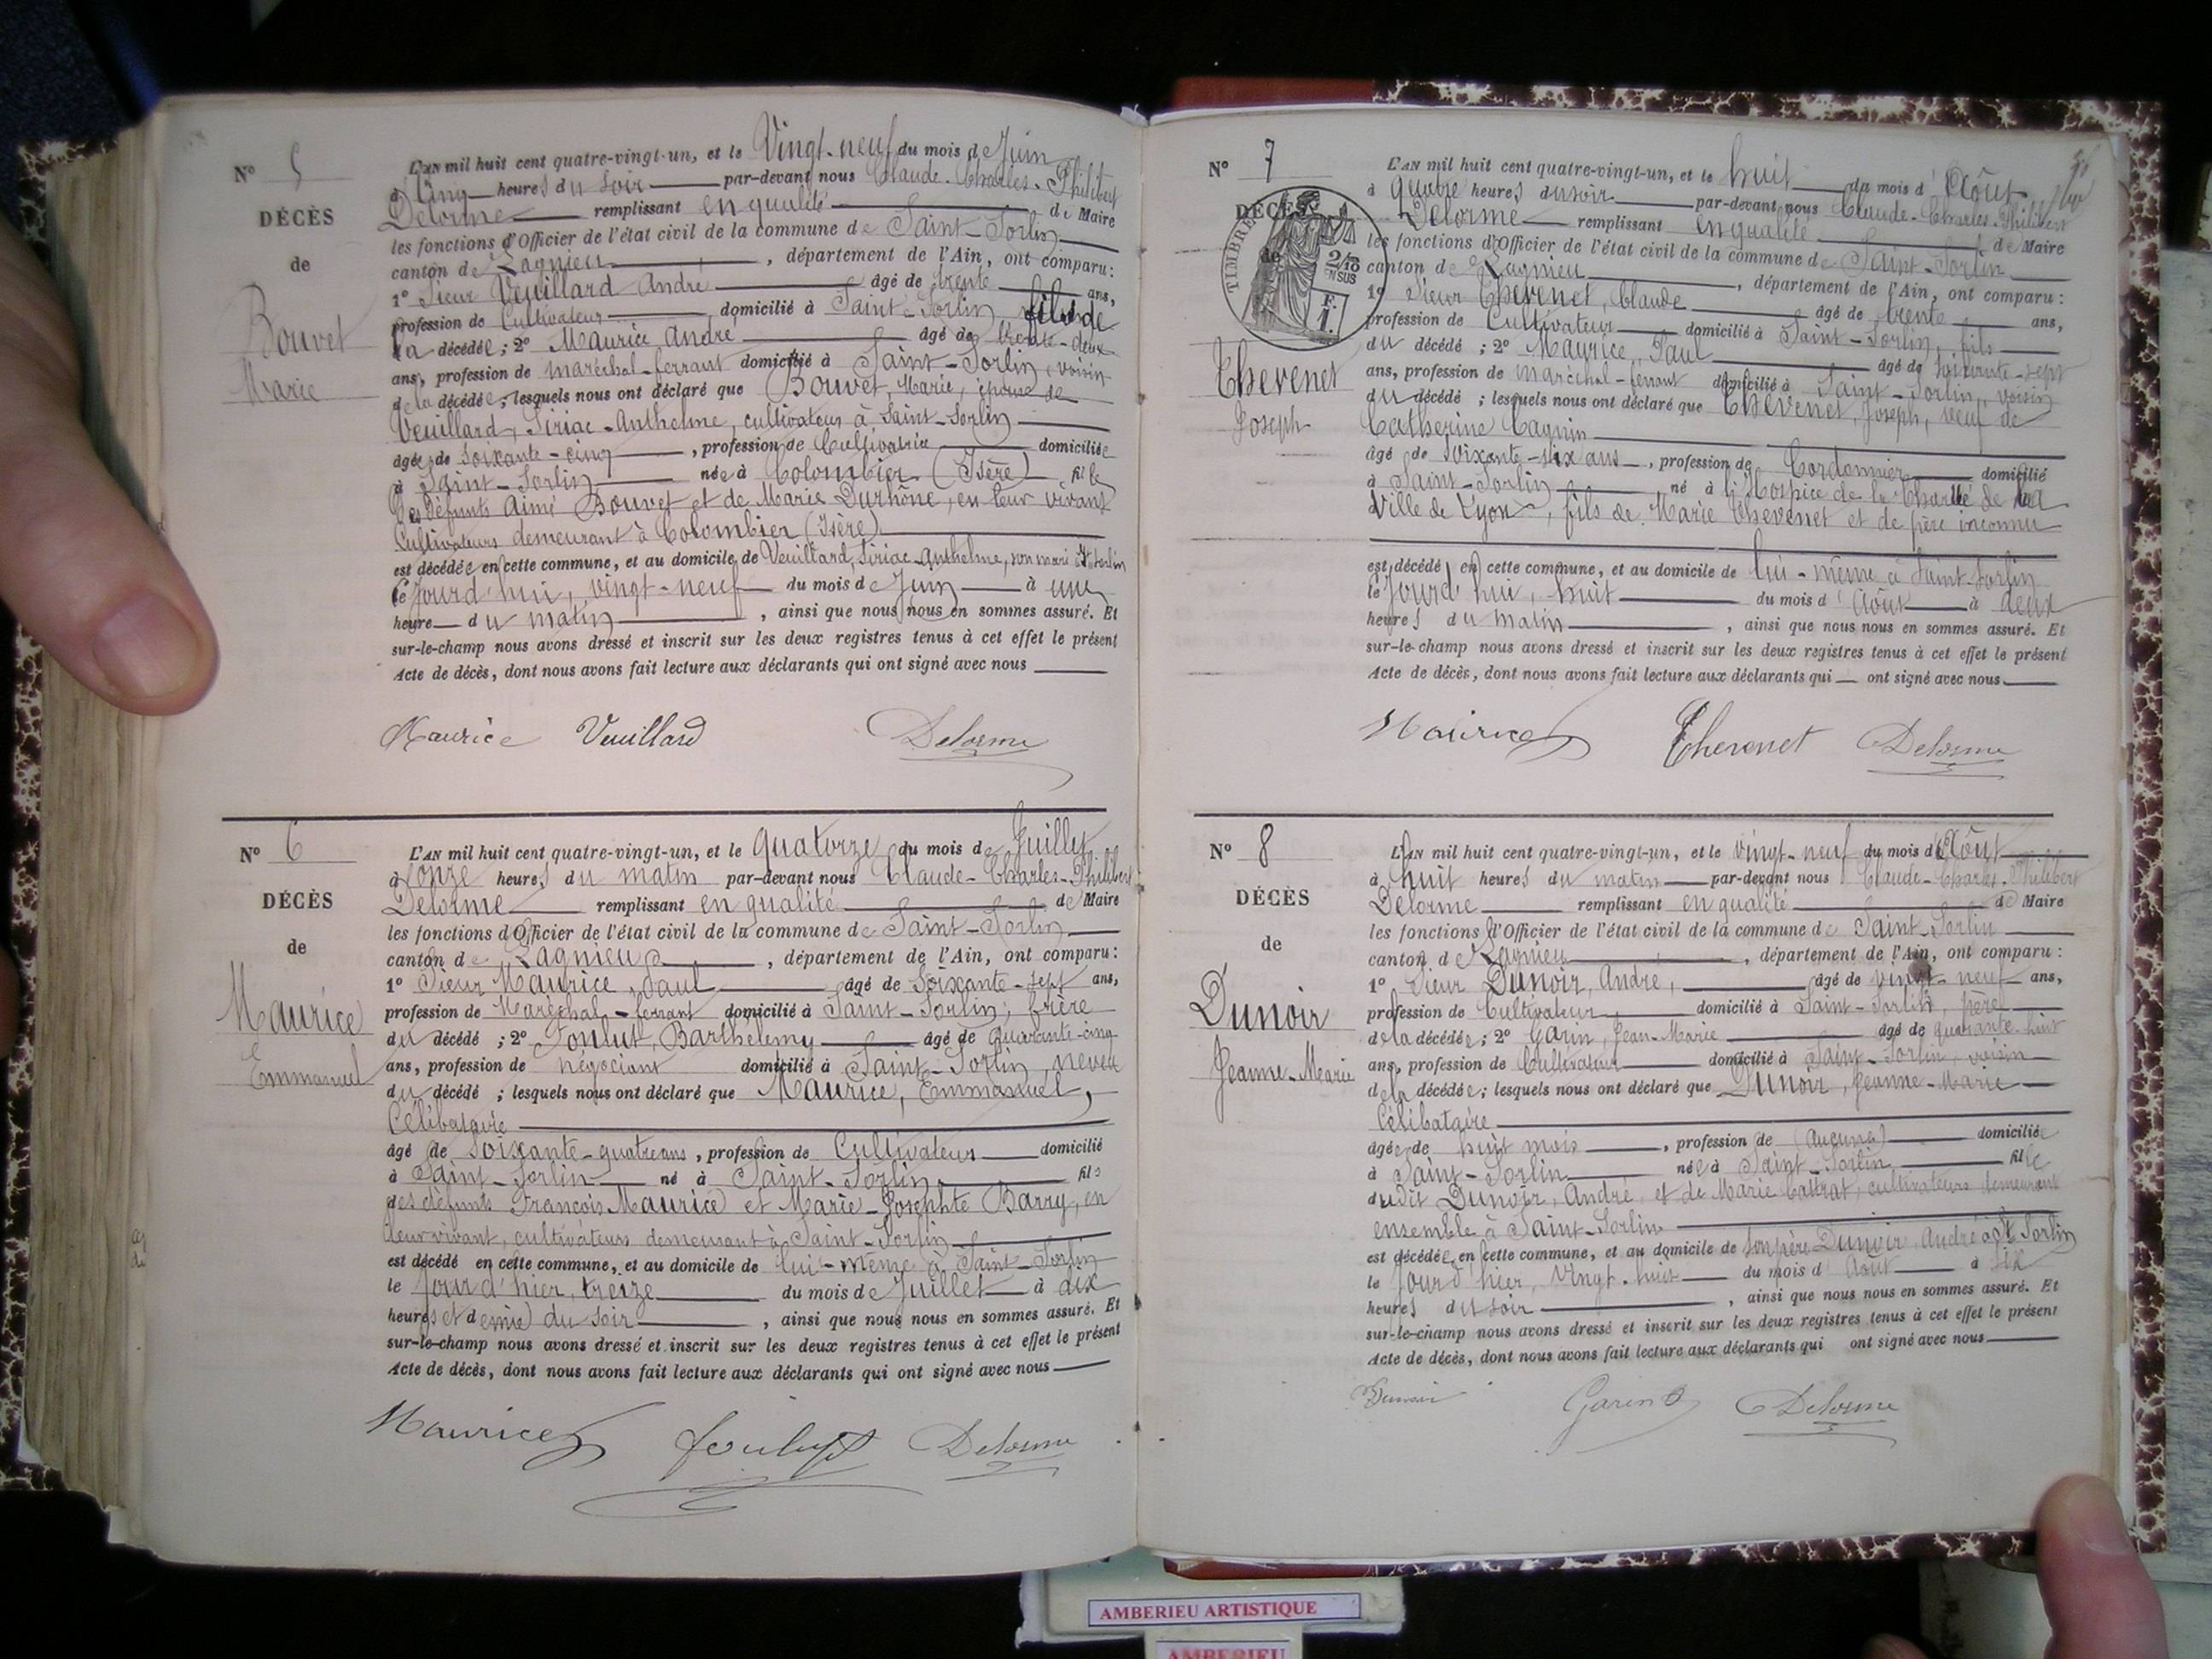 N° 5
DÉCÈS
de
Bouvet
Marie
L'AN mil huit cent quatre-vingt-un, et le Vingt-neuf du mois de Juin
à Cinq heures du soir par-devant nous Claude-Charles-Philibert
Delorme remplissant en qualité de Maire
les fonctions d'Officier de l'état civil de la commune de Saint-Sorlin
canton de Lagnieu, département de l'Ain, ont comparu:
1° Sieur Veuillard André âgé de trente ans,
profession de Cultivateur domicilié à Saint-Sorlin, fils de
la décédée; 2° Maurice André âgé de trente-deux
ans, profession de maréchal-ferrant domicilié à Saint-Sorlin, voisin
de la décédée, lesquels nous ont déclaré que Bouvet, Marie, épouse de
Veuillard, Siriac-Anthelme, cultivateur à Saint-Sorlin
âgée de soixante-cinq, profession de Cultivatrice domiciliée
à Saint-Sorlin née à Colombier (Isère) fille
des défunts Aimé Bouvet et de Marie Durhône, en leur vivant
Cultivateurs demeurant à Colombier (Isère)
est décédée en cette commune, et au domicile de Veuillard, Siriac-Anthelme, son mari à St Sorlin
le Jourd'hui, vingt-neuf du mois de Juin à une
heure du matin, ainsi que nous nous en sommes assuré. Et
sur-le-champ nous avons dressé et inscrit sur les deux registres tenus à cet effet le présent
Acte de décès, dont nous avons fait lecture aux déclarants qui ont signé avec nous
Maurice Veuillard Delorme
N° 6
DÉCÈS
de
Maurice
Emmanuel
L'AN mil huit cent quatre-vingt-un, et le quatorze du mois de Juillet
à onze heures du matin par-devant nous Claude-Charles-Philibert
Delorme remplissant en qualité de Maire
les fonctions d'Officier de l'état civil de la commune de Saint-Sorlin
canton de Lagnieu, département de l'Ain, ont comparu:
1° Sieur Maurice, Paul âgé de Soixante-sept ans,
profession de Maréchal-ferrant domicilié à Saint-Sorlin, frère
du décédé; 2° Foulut, Barthélemy âgé de quarante-cinq
ans, profession de négociant domicilié à Saint-Sorlin, neveu
du décédé; lesquels nous ont déclaré que Maurice, Emmanuel,
Célibataire
âgé de soixante-quatre ans, profession de Cultivateur domicilié
à Saint-Sorlin né à Saint-Sorlin fils
des défunts François Maurice et Marie-Josephte Barry, en
leur vivant, cultivateurs demeurant à Saint-Sorlin
est décédé en cette commune, et au domicile de lui-même à Saint-Sorlin
le Jour d'hier, treize du mois de Juillet à dix
heures et demie du soir, ainsi que nous nous en sommes assuré. Et
sur-le-champ nous avons dressé et inscrit sur les deux registres tenus à cet effet le présent
Acte de décès, dont nous avons fait lecture aux déclarants qui ont signé avec nous
Maurice Foulut Delorme
N° 7
DÉCÈS
de
TIMBRE
2/10
EN SUS
F.
1.
Thevenet
Joseph
L'AN mil huit cent quatre-vingt-un, et le huit du mois d'Août
à quatre heures du soir par-devant nous Claude-Charles-Philibert
Delorme remplissant en qualité de Maire
les fonctions d'Officier de l'état civil de la commune de Saint-Sorlin
canton de Lagnieu, département de l'Ain, ont comparu:
1° Sieur Thevenet, Claude âgé de trente ans,
profession de Cultivateur domicilié à Saint-Sorlin, fils
du décédé; 2° Maurice, Paul âgé de soixante-sept
ans, profession de maréchal-ferrant domicilié à Saint-Sorlin, voisin
du décédé; lesquels nous ont déclaré que Thevenet, Joseph, veuf de
Catherine Cagnin
âgé de soixante-six ans, profession de Cordonnier domicilié
à Saint-Sorlin né à l'Hospice de la Charité de la
Ville de Lyon, fils de Marie Thevenet et de père inconnu
est décédé en cette commune, et au domicile de lui-même à Saint-Sorlin
le Jourd'hui, huit du mois d'Août à deux
heures du matin, ainsi que nous nous en sommes assuré. Et
sur-le-champ nous avons dressé et inscrit sur les deux registres tenus à cet effet le présent
Acte de décès, dont nous avons fait lecture aux déclarants qui ont signé avec nous
Maurice Thevenet Delorme
N° 8
DÉCÈS
de
Dunoir
Jeanne-Marie
L'AN mil huit cent quatre-vingt-un, et le vingt-neuf du mois d'Août
à huit heures du matin par-devant nous Claude-Charles-Philibert
Delorme remplissant en qualité de Maire
les fonctions d'Officier de l'état civil de la commune de Saint-Sorlin
canton de Lagnieu, département de l'Ain, ont comparu:
1° Sieur Dunoir, André, âgé de vingt-neuf ans,
profession de Cultivateur, domicilié à Saint-Sorlin, père
de la décédée; 2° Garin, Jean-Marie âgé de quarante-huit
ans, profession de Cultivateur domicilié à Saint-Sorlin, voisin
de la décédée; lesquels nous ont déclaré que Dunoir, Jeanne-Marie
Célibataire
âgée de huit mois, profession de (aucune) domiciliée
à Saint-Sorlin née à Saint-Sorlin fille
dudit Dunoir, André et de Marie Cattrat, cultivateurs demeurant
ensemble à Saint-Sorlin
est décédée en cette commune, et au domicile de son père Dunoir André à St Sorlin
le Jour d'hier, vingt-huit du mois d'Août à six
heures du soir, ainsi que nous nous en sommes assuré. Et
sur-le-champ nous avons dressé et inscrit sur les deux registres tenus à cet effet le présent
Acte de décès, dont nous avons fait lecture aux déclarants qui ont signé avec nous
Dunoir Garin Delorme
AMBERIEU ARTISTIQUE
AMBERIEU